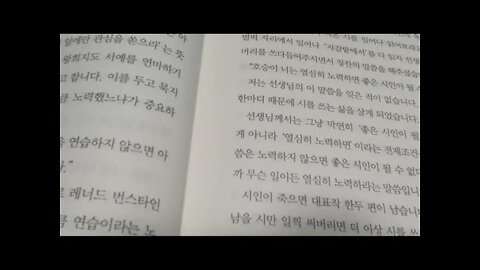 일에만 관심을 쏟으라'는 뜻
왕희지도 서예를 연마하기
고 합니다. 이를 두고 묵지
큼 노력했느냐가 중요하
을 연습하지 않으면 아
다."
로 레너드 번스타인
큼 연습이라는 노
발딱 자리에서 일어나 '자갈밭에서'를 다 읽자 선생
머리를 쓰다듬어주시면서 칭찬의 말씀을 해주셨습
"호승이 너는 열심히 노력하면 좋은 시인이 될 수
저는 선생님의 이 말씀을 잊은 적이 없습니다.
한마디 때문에 시를 쓰는 삶을 살게 되었습니다.
선생님께서는 그냥 막연히 '좋은 시인이 될
게 아니라 '열심히 노력하면'이라는 전제조건
씀은 노력하지 않으면 좋은 시인이 될 수 없다
까 무슨 일이든 열심히 노력하라는 말씀입니
시인이 죽으면 대표작 한두 편이 남습니
남을 시만 일찍 써버리면 더 이상 시를 쓰